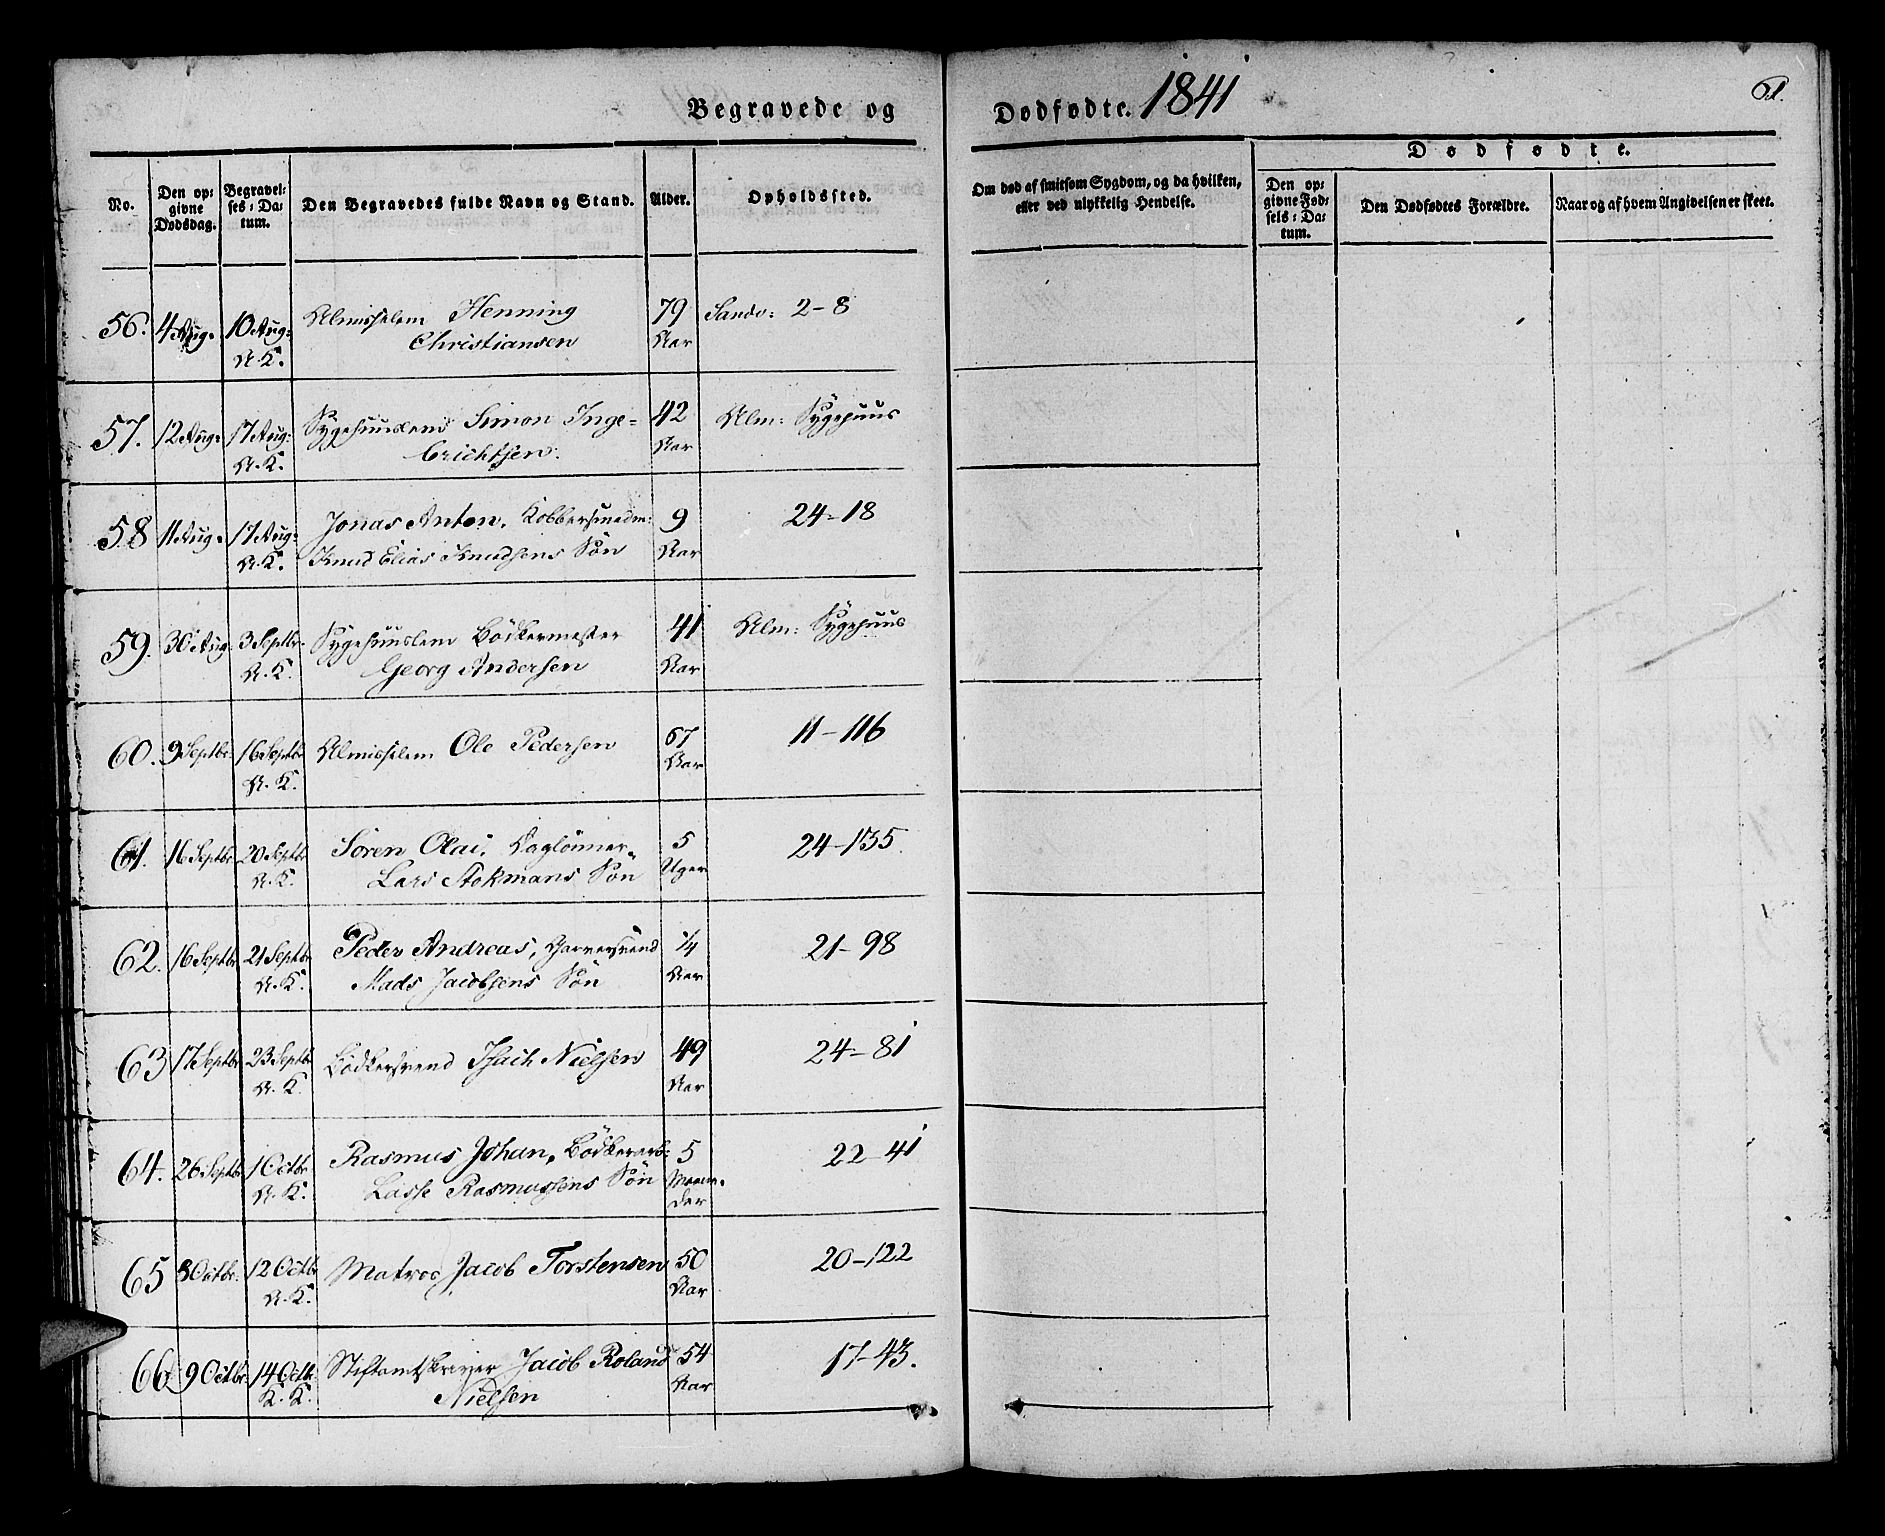 Begravede og Dødfødte. 1841
61.
No.
Den op-
givne
Dødsdag.
Begravel-
ses-Da-
tum.
Den Begravedes fulde Navn og Stand.
Alder.
Opholdssted.
Om død af smitsom Sygdom, og da hvilken,
eller ved ulykkelig Hendelse.
Dødfødte.
Den op-
givne Fød-
sels-Da-
tum.
Den Dødfødtes Forældre.
Naar og af hvem Angivelsen er skeet.
56. 4 Aug: 10 Aug: Almisselem Henning 79 Sandv: 2-8
N.K. Christiansen Aar
57. 12 Aug: 17 Aug: Sygehuuslem Simon Inge- 42 Alm: Sygehuus
N.K. brichtsen. Aar
58 11 Aug: 17 Aug: Jonas Anton, Kobbersmedm: 9 24-18
N.K. Knud Elias Knudsens Søn Aar
59. 30 Aug: 3 Septbr. Sygehuuslem Bødkermester 41 Alm: Sygehuus
N.K. Georg Andersen Aar
60. 9 Septbr. 16 Septbr Almisselem Ole Pedersen 67 11-116
N.K. Aar
61. 16 Septbr. 20 Septbr Søren Olai, Daglønner 5 24-135.
N.K. Lars Stokmans Søn Uger
62. 16 Septbr 21 Septbr Peder Andreas, Garversvend 1/4 21-98
N.K. Mads Jacobsens Søn Aar
63 17 Septbr 23 Septbr Bødkersvend Isach Nielsen 49 24-81
N.K. Aar
64. 26 Septbr 1 Octbr. Rasmus Johan, Bødkerarb: 5 22-41
N.K. Lasse Rasmussens Søn Maane-
der
65 8 Octbr. 12 Octbr Matros Jacob Torstensen 50 20-122
N.K. Aar
66 9 Octbr. 14 Octbr. Stiftamtskriver Jacob Roland 54 17-43.
K.K. Nielsen Aar